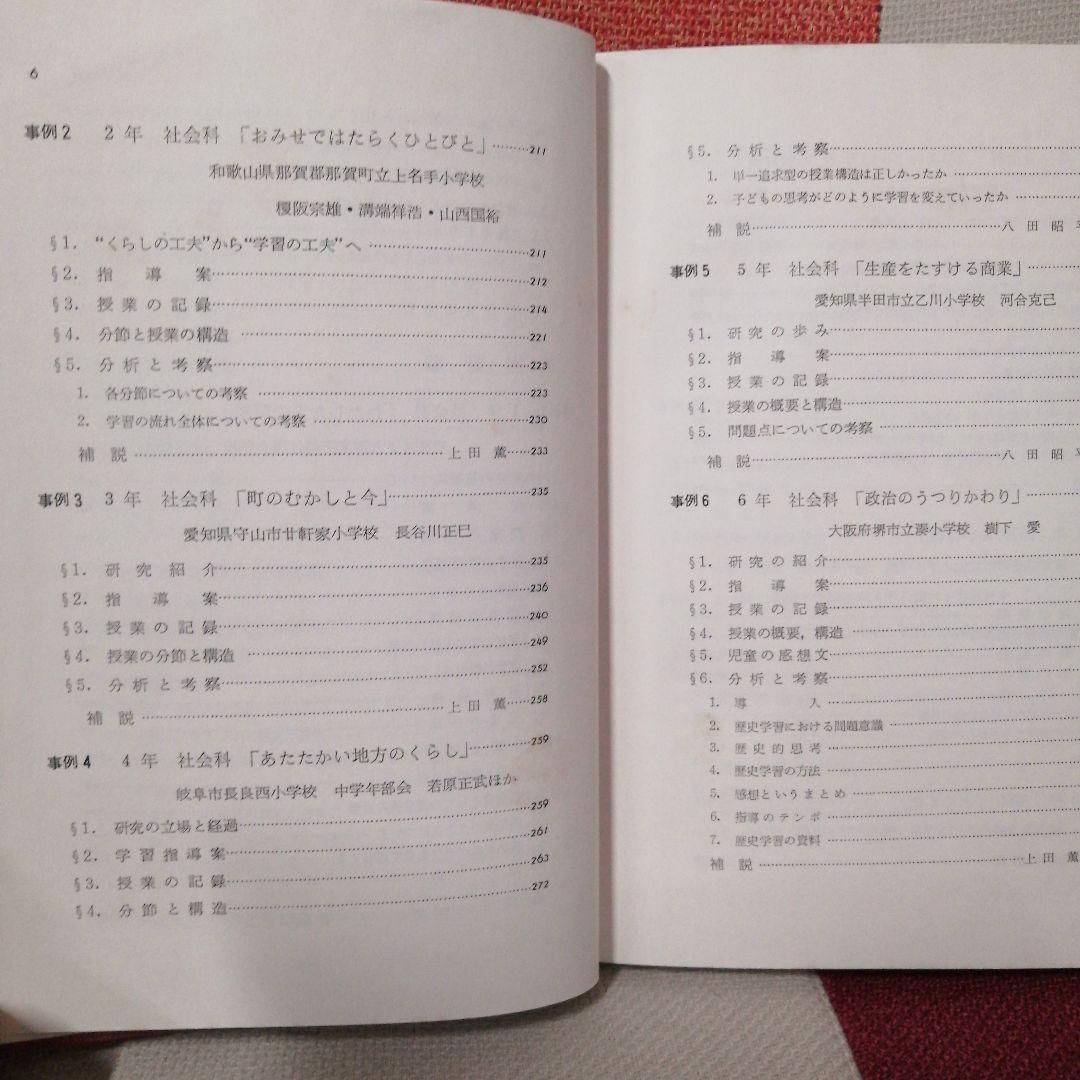 6
事例2 2年 社会科 「おみせではたらくひとびと」………211
和歌山県那賀郡那賀町立上名手小学校
榎阪宗雄・溝端祥浩・山西国裕
§1. “くらしの工夫”から“学習の工夫”へ………211
§2. 指導案………212
§3. 授業の記録………214
§4. 分節と授業の構造………221
§5. 分析と考察………223
1. 各分節についての考察………223
2. 学習の流れ全体についての考察………230
補説………上田薫……233
事例3 3年 社会科 「町のむかしと今」………235
愛知県守山市廿軒家小学校 長谷川正巳
§1. 研究紹介………235
§2. 指導案………236
§3. 授業の記録………240
§4. 授業の分節と構造………249
§5. 分析と考察………252
補説………上田薫……258
事例4 4年 社会科 「あたたかい地方のくらし」………259
岐阜市長良西小学校 中学年部会 若原正武ほか
§1. 研究の立場と経過………259
§2. 学習指導案………261
§3. 授業の記録………263
§4. 分節と構造………272
§5. 分析と考察………
1. 単一追求型の授業構造は正しかったか………
2. 子どもの思考がどのように学習を変えていったか………
補説………八田昭平
事例5 5年 社会科 「生産をたすける商業」………
愛知県半田市立乙川小学校 河合克己
§1. 研究の歩み………
§2. 指導案………
§3. 授業の記録………
§4. 授業の概要と構造………
§5. 問題点についての考察………
補説………八田昭平
事例6 6年 社会科 「政治のうつりかわり」………
大阪府堺市立湊小学校 樹下愛
§1. 研究の紹介………
§2. 指導案………
§3. 授業の記録………
§4. 授業の概要，構造………
§5. 児童の感想文………
§6. 分析と考察………
1. 導入………
2. 歴史学習における問題意識………
3. 歴史的思考………
4. 歴史学習の方法………
5. 感想というまとめ………
6. 指導のテンポ………
7. 歴史学習の資料………
補説………上田薫